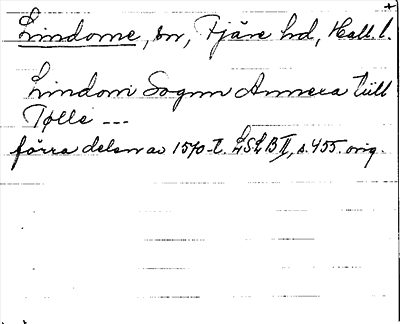 Lindome, sn, Fjäre hd, Hall. l.
Lindom Sognn Annexa tiill
Tølle ---
förra delen av 1570-t. LSLB II, s. 455. orig.